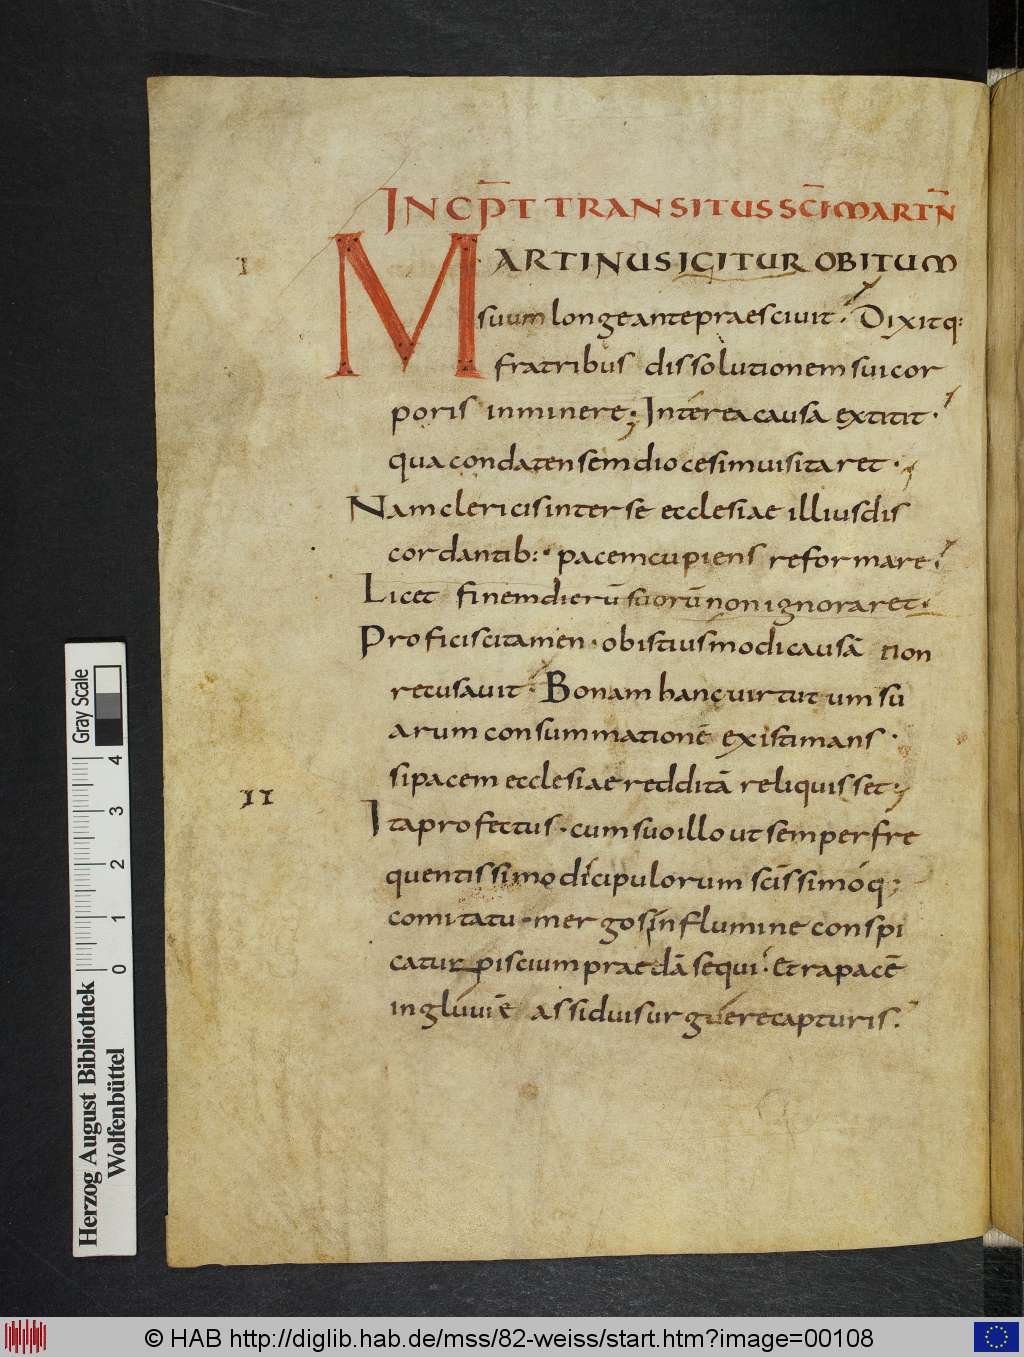 INCIP̄T TRANSITUS SC̄I MARTN̄
I
MARTINUS IGITUR OBITUM
suum longe ante praescivit · Dixitq:
fratribus dissolutionem sui cor
poris inminere; Interea causa extitit ·
qua condatensem diocesim visitaret ·
Nam clericis inter se ecclesiae illius dis
cordantib: · pacem cupiens reformare ·
Licet finem dierū suorū non ignoraret ·
Proficisci tamen · ob istiusmodi causā non
recusavit · Bonam hanc virtutum su
arum consummationē existimans ·
si pacem ecclesiae redditā reliquisset ;
II
Ita profectus · cum suo illo ut semper fre
quentissimo dicipulorum sc̄issimoq;
comitatu · mergos in flumine conspi
catur piscium praedā sequi · Et rapacē
ingluviē assiduis urguere capturis ·
Gray Scale
4
3
2
1
0
Herzog August Bibliothek
Wolfenbüttel
© HAB http://diglib.hab.de/mss/82-weiss/start.htm?image=00108